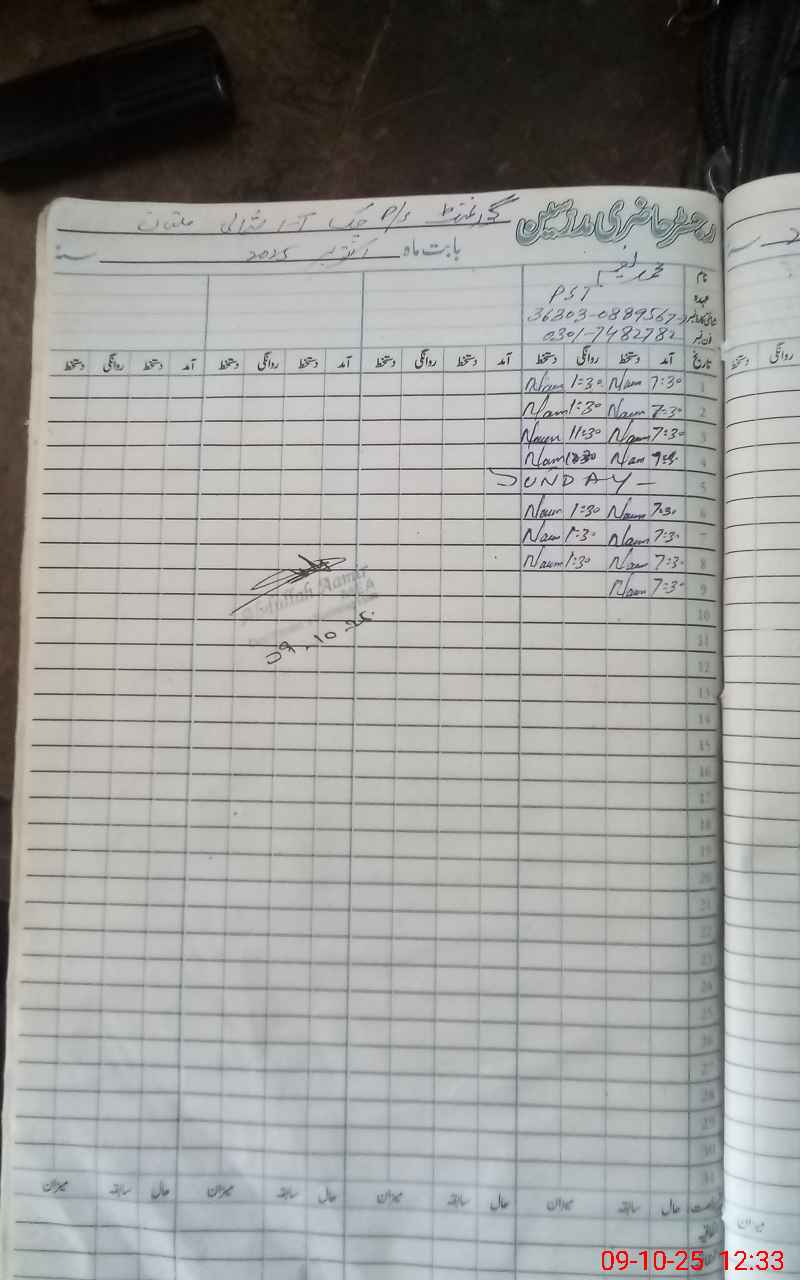 رجسٹر حاضری مدرسین گورنمنٹ P/S چک
بابت ماہ اکتوبر 2025 سنہ
نام محمد نعیم
عہدہ PST
شناختی کارڈ نمبر 36303-0889567-
فون نمبر 0301-7482782
تاریخ آمد دستخط روانگی دستخط آمد دستخط روانگی دستخط آمد دستخط روانگی دستخط آمد دستخط روانگی دستخط
1 7:30 Naeem 1:30 Naeem
2 7:30 Naeem 1:30 Naeem
3 7:30 Naeem 11:30 Naeem
4 Naeem Naeem
5 SUNDAY
6 7:30 Naeem 1:30 Naeem
7 7:30 Naeem 1:30 Naeem
8 7:30 Naeem 1:30 Naeem
9 7:30 Naeem
Abdullah Aamir
MEA
09-10-25
10
11
12
13
14
15
16
17
18
19
20
21
22
23
24
25
26
27
28
29
30
31
حال سابقہ میزان حال سابقہ میزان حال سابقہ میزان حال سابقہ میزان
09-10-25 12:33